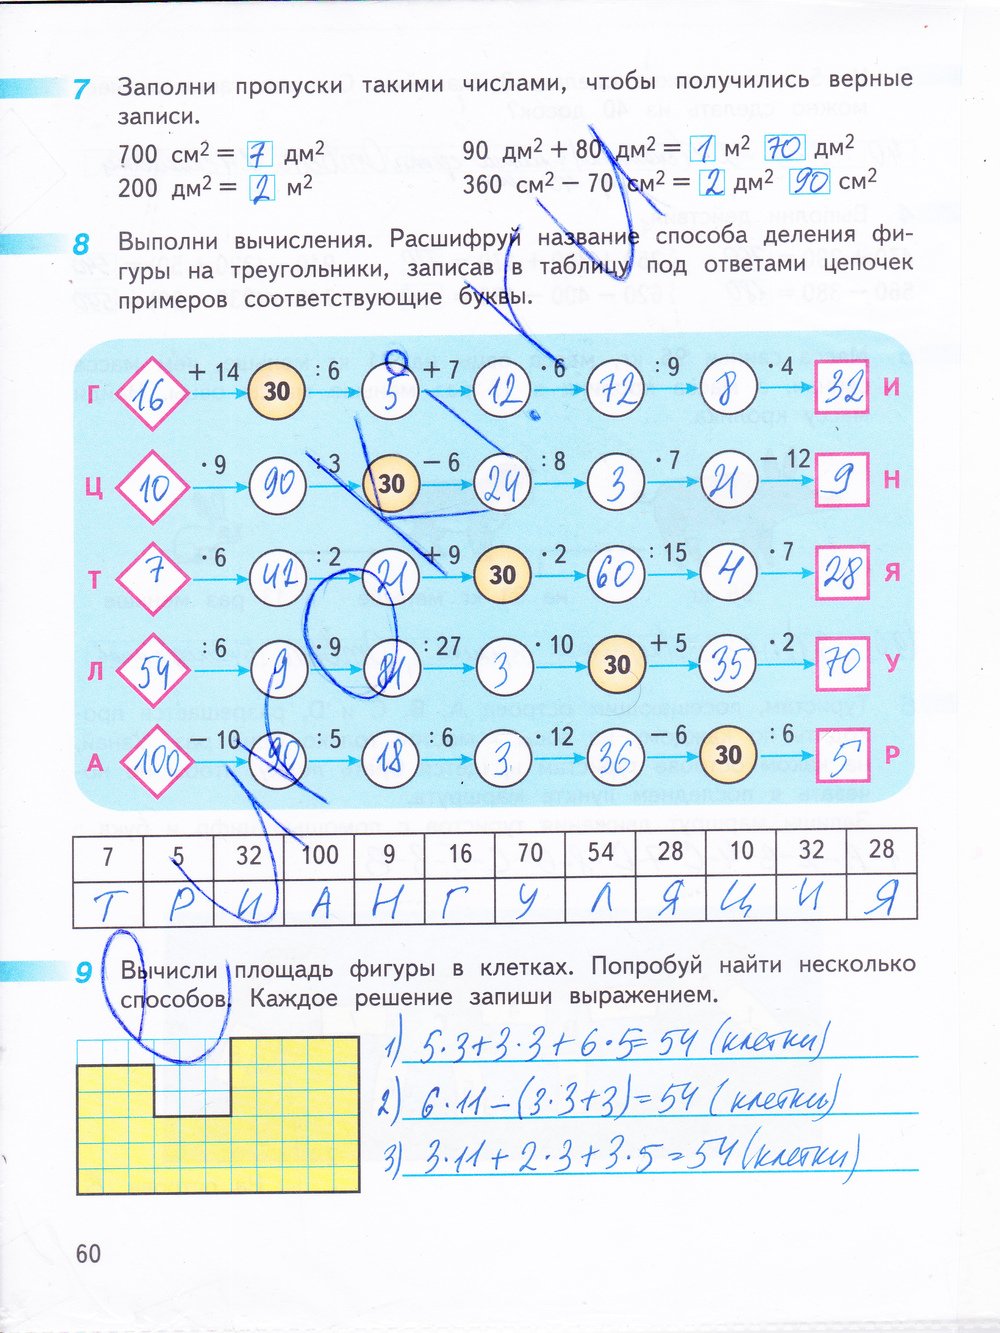 7 Заполни пропуски такими числами, чтобы получились верные
записи.
700 см² = 7 дм² 90 дм² + 80 дм² = 1 м² 70 дм²
200 дм² = 2 м² 360 см² − 70 см² = 2 дм² 90 см²
8 Выполни вычисления. Расшифруй название способа деления фи-
гуры на треугольники, записав в таблицу под ответами цепочек
примеров соответствующие буквы.
Г 16 + 14 30 : 6 5 + 7 12 · 6 72 : 9 8 · 4 32 И
Ц 10 · 9 90 : 3 30 − 6 24 : 8 3 · 7 21 − 12 9 Н
Т 7 · 6 42 : 2 21 + 9 30 · 2 60 : 15 4 · 7 28 Я
Л 54 : 6 9 · 9 81 : 27 3 · 10 30 + 5 35 · 2 70 У
А 100 − 10 90 : 5 18 : 6 3 · 12 36 − 6 30 : 6 5 Р
7 5 32 100 9 16 70 54 28 10 32 28
Т Р И А Н Г У Л Я Ц И Я
9 Вычисли площадь фигуры в клетках. Попробуй найти несколько
способов. Каждое решение запиши выражением.
1) 5·3+3·3+6·5=54 (клетки)
2) 6·11−(3·3+3)=54 (клетки)
3) 3·11+2·3+3·5=54 (клетки)
60